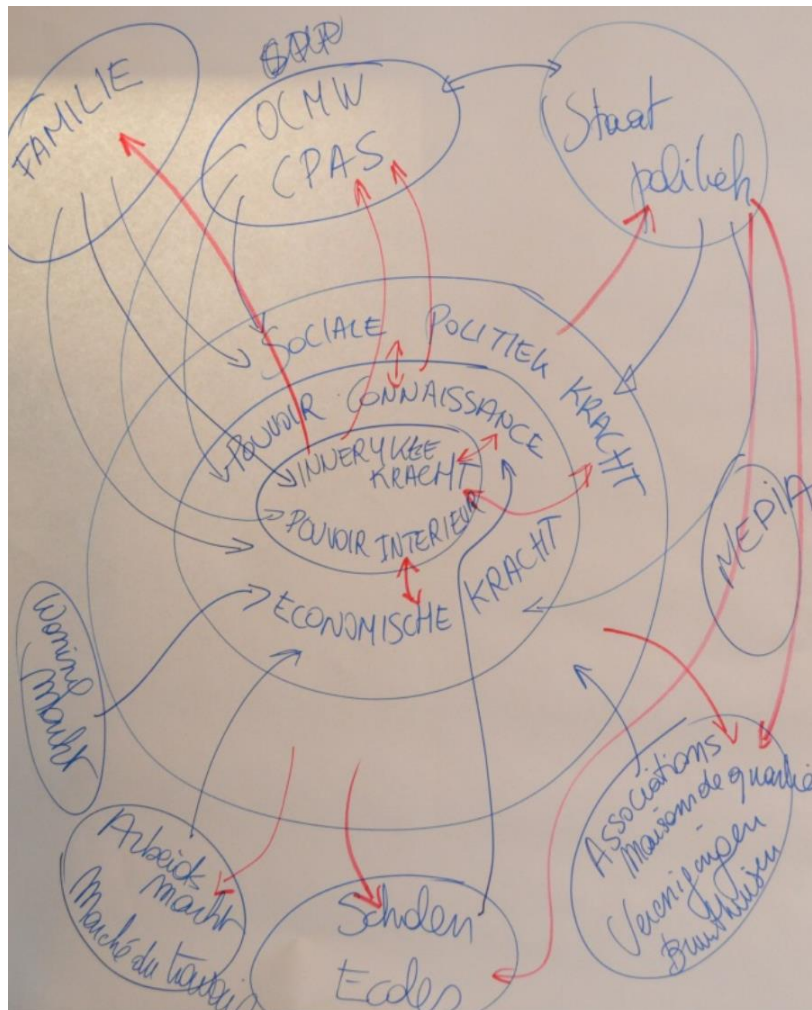 FAMILIE
OCMW
CPAS
Staat
politiek
SOCIALE POLITIEK KRACHT
POUVOIR CONNAISSANCE
INNERYKE
KRACHT
POUVOIR INTERIEUR
ECONOMISCHE KRACHT
MEDIA
Woning
Markt
Arbeids
Markt
Marché du travail
Scholen
Ecoles
Associations
Maison de quartie
Verenigingen
Buurthuisen